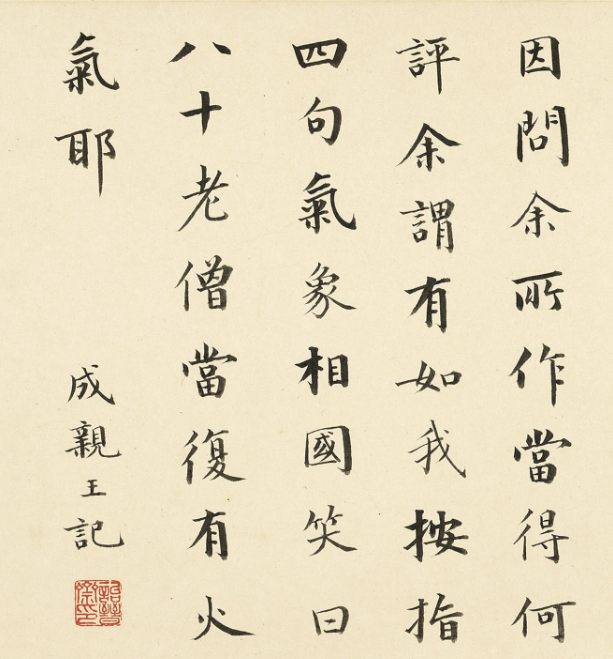 因問余所作當得何
評余謂有如我按指
四句氣象相國笑曰
八十老僧當復有火
氣耶
成親王記